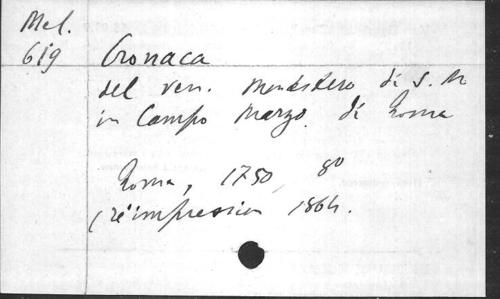 Mel.
619 Cronaca
del ven. monastero di S. M
in Campo Marzo di Roma
Roma, 1750, 8º
(réimpression 1864.